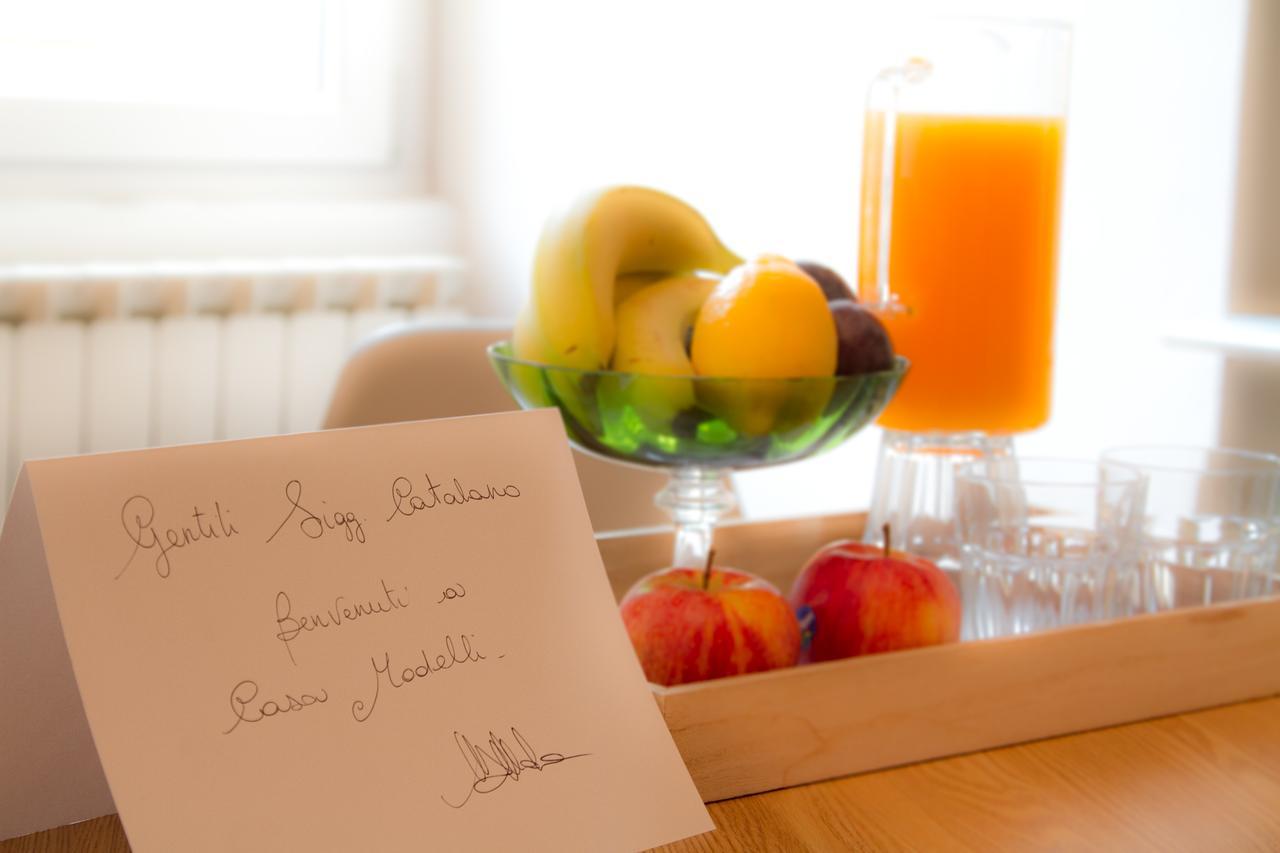 Gentili Sigg. Catalano
Benvenuti a
Casa Modelli.